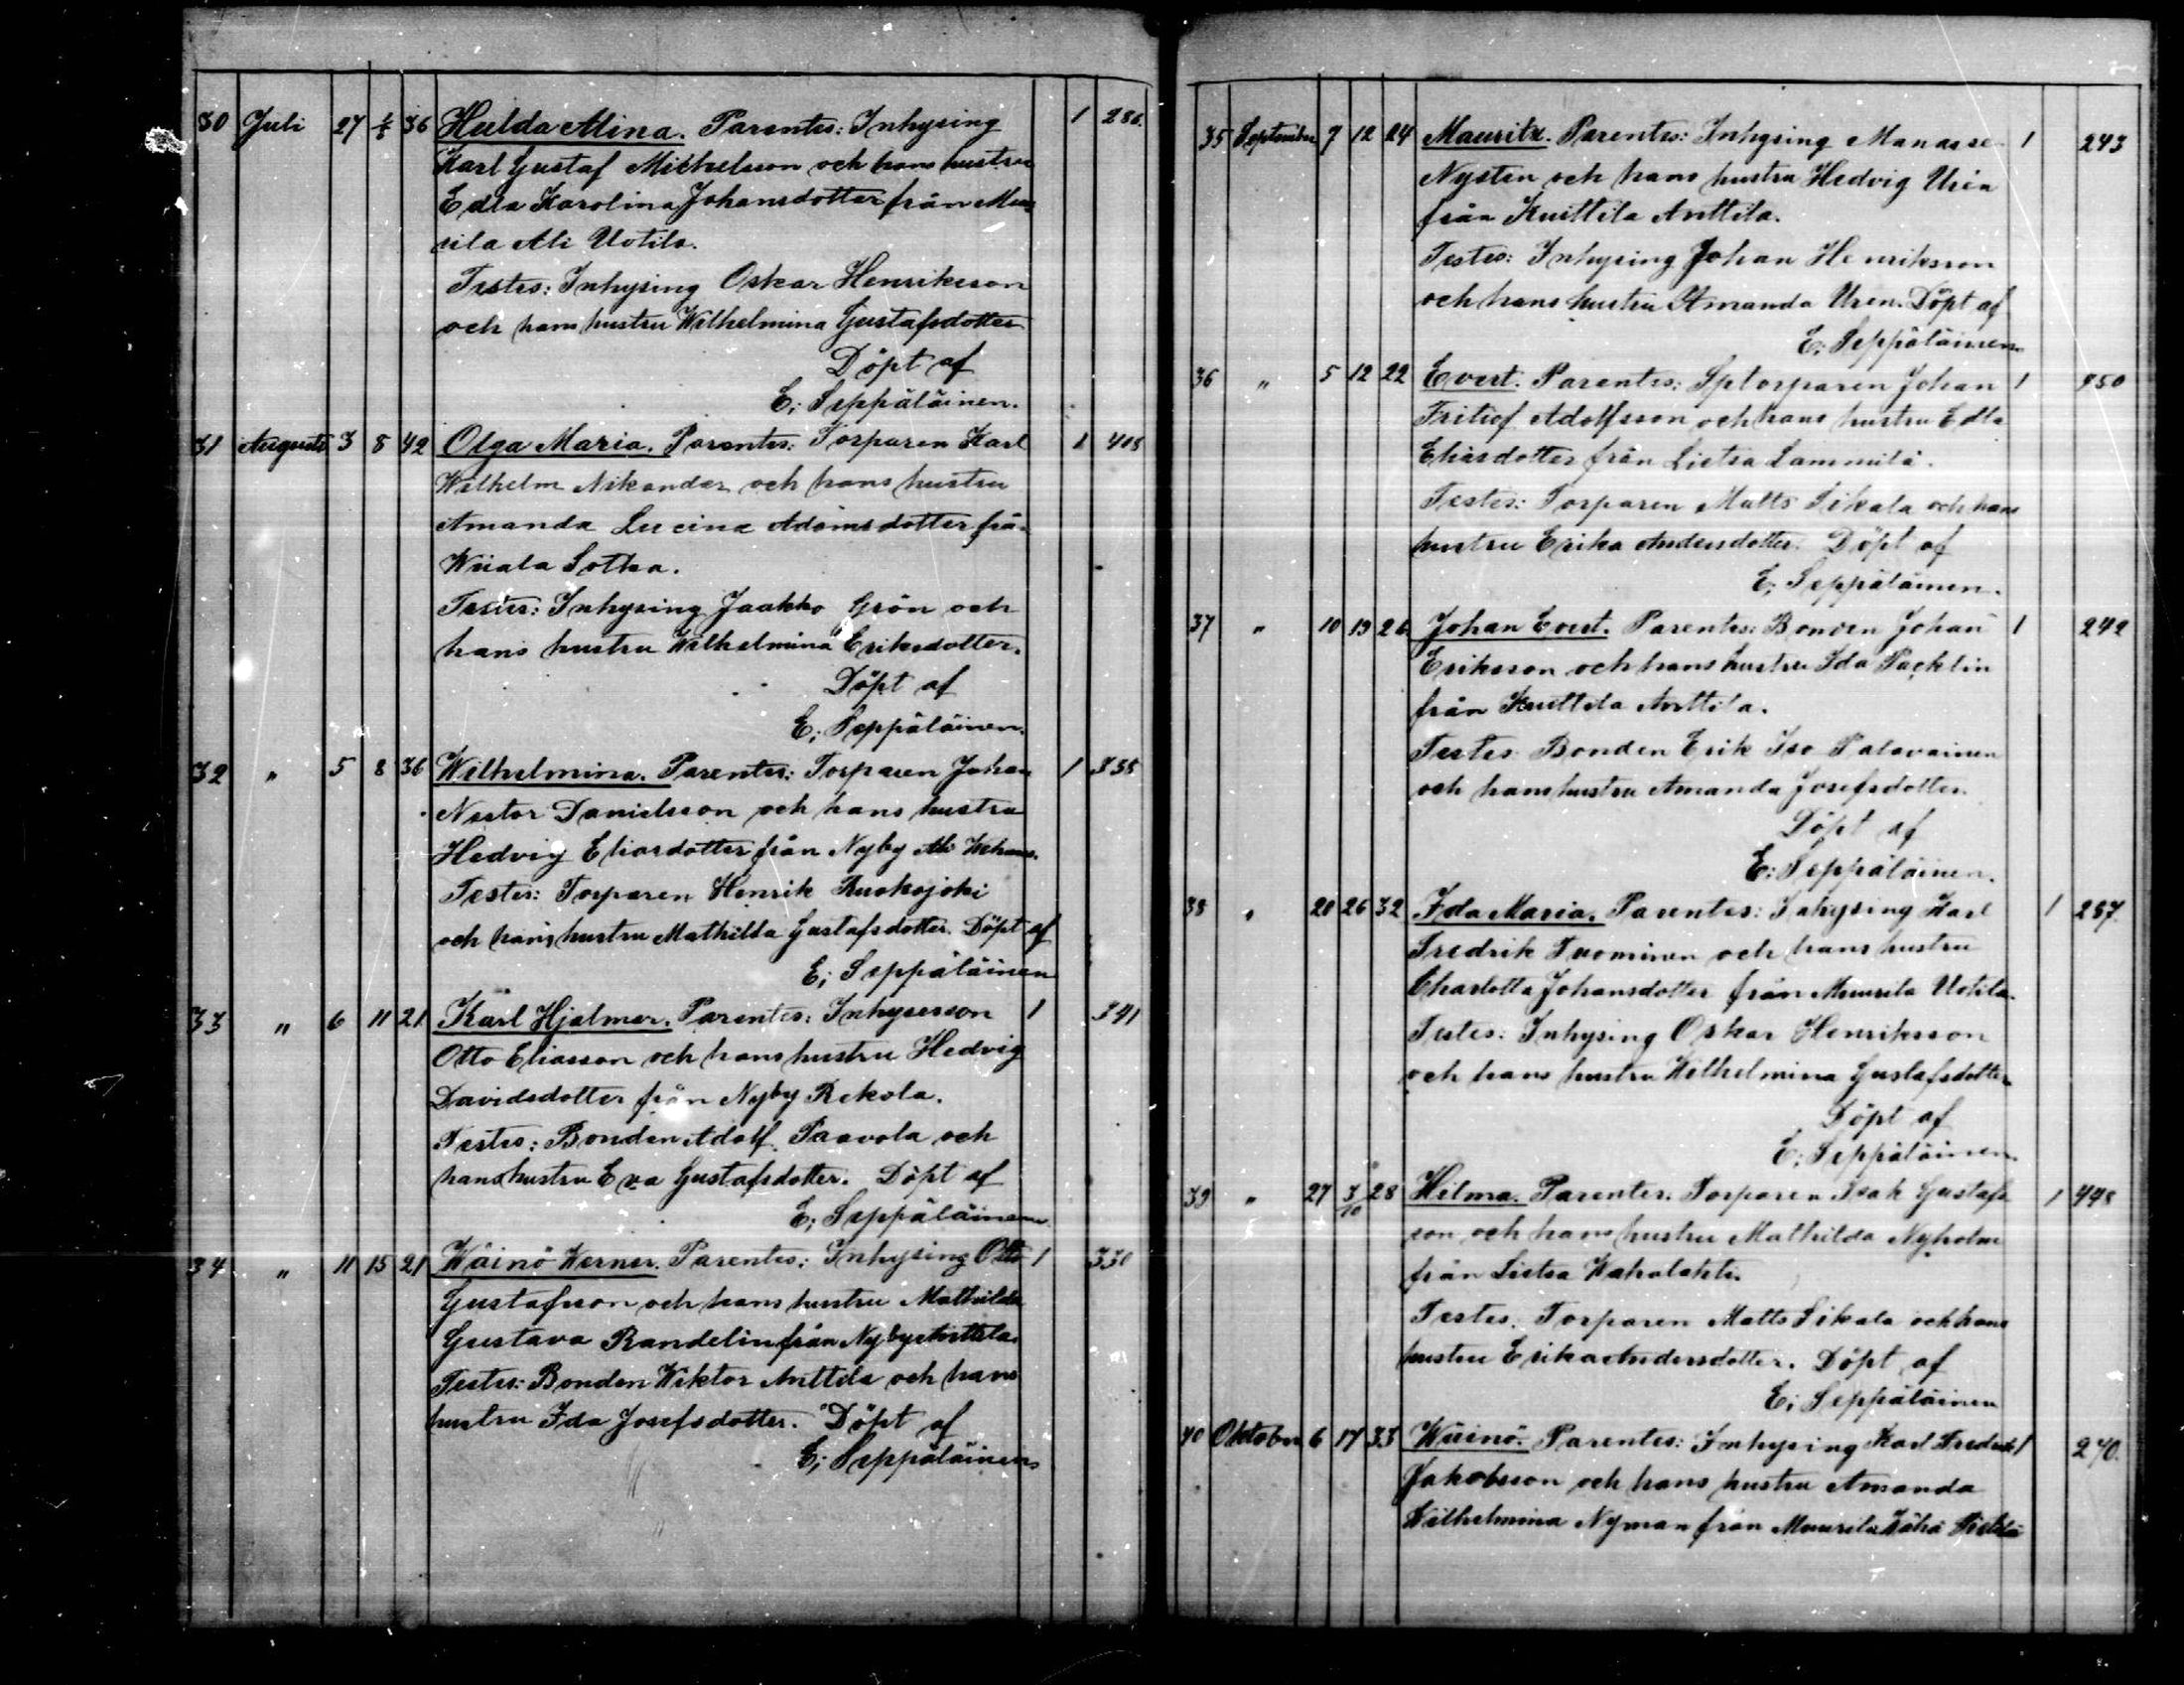 30 Juli 27 36 Hulda Alina. Parentes: Inhysing 1 286.
Karl Gustaf Michelsson och hans hustru
Edla Karolina Johansdotter från Muu
rila Ali Uotila.
Testes: Inhysing Oskar Henriksson
och hans hustru Wilhelmina Gustafsdotter
Döpt af
E; Seppäläinen.
31 Augusti 3 8 42 Olga Maria. Parentes: Torparen Karl 1 408
Wilhelm Nikander och hans hustru
Amanda Lucina Adamsdotter från
Wiiala Sotka.
Testes: Inhysing Jaakko Grön och
hans hustru Wilhelmina Eriksdotter.
Döpt af
E; Seppäläinen.
32 " 5 8 36 Wilhelmina. Parentes: Torparen Johan 1 338
Nestor Danielsson och hans hustru
Hedvig Eliasdotter från Nyby Ali
Testes: Torparen Henrik Ruokojoki
och hans hustru Mathilda Gustafsdotter. Döpt af
E; Seppäläinen
33 " 6 11 21 Karl Hjalmer. Parentes: Inhyseson 1 341
Otto Eliasson och hans hustru Hedvig
Davidsdotter från Nyby Rekola.
Testes: Bonden Adolf Paavola och
hans hustru Eva Gustafsdotter. Döpt af
E; Seppäläinen.
34 " 11 15 21 Wäinö Werner. Parentes: Inhysing Otto 1 330
Gustafsson och hans hustru Mathilda
Gustava Randelin från Nyby Anttila
Testes: Bonden Wiktor Anttila och hans
hustru Ida Josefsdotter. Döpt af
E; Seppäläinen
35 September 7 12 24 Mauritz. Parentes: Inhysing Manasse 1 243
Nysten och hans hustru Hedvig Urén
från Knuttila Anttila.
Testes: Inhysing Johan Henriksson
och hans hustru Amanda Uren. Döpt af
E; Seppäläinen.
36 " 5 12 22 Evert. Parentes: Sptorparen Johan 1 450
Fritiof Adolfsson och hans hustru Edla
Eliasdotter från Lietsa Lammila.
Testes: Torparen Matts Sikala och hans
hustru Erika Andersdotter. Döpt af
E; Seppäläinen.
37 " 10 19 26 Johan Evert. Parentes: Bonden Johan 1 242
Eriksson och hans hustru Ida Packlin
från Knuttila Anttila.
Testes: Bonden Erik Iso Palavainen
och hans hustru Amanda Josefsdotter.
Döpt af
E; Seppäläinen.
38 " 20 26 32 Ida Maria. Parentes: Inhysing Karl 1 287
Fredrik Tuominen och hans hustru
Charlotta Johansdotter från Muurila Uotila.
Testes: Inhysing Oskar Henriksson
och hans hustru Wilhelmina Gustafsdotter
Döpt af
E; Seppäläinen.
39 " 27 3/10 28 Hilma. Parentes: Torparen Isak Gustafs 1 448
son och hans hustru Mathilda Nyholm
från Lietsa Kahalahti.
Testes: Torparen Matts Sikala och hans
hustru Erika Andersdotter. Döpt af
E; Seppäläinen
40 Oktober 6 17 33 Wäinö. Parentes: Inhysing Karl Fredrik 1 270.
Jakobsson och hans hustru Amanda
Wilhelmina Nyman från Muurila Wähä